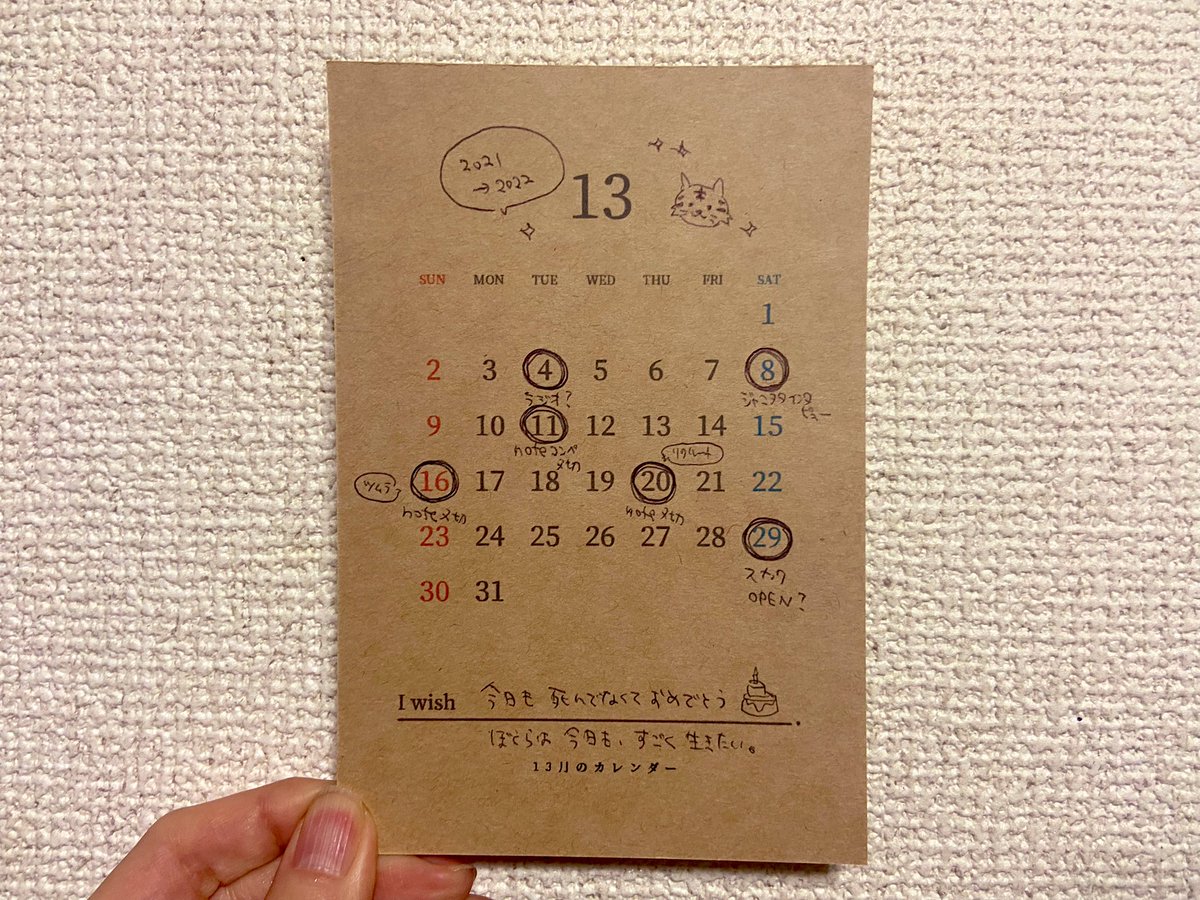 2021
→2022
13
SUN MON TUE WED THU FRI SAT
1
2 3 4 5 6 7 8
ラジオ?
9 10 11 12 13 14 15
noteコンペ
〆切
リクルート
ツムラ
16 17 18 19 20 21 22
note〆切 note〆切
23 24 25 26 27 28 29
スナック
OPEN?
30 31
I wish 今日も 死んでなくて おめでとう
ぼくらは 今日も、すごく 生きたい。
13月のカレンダー